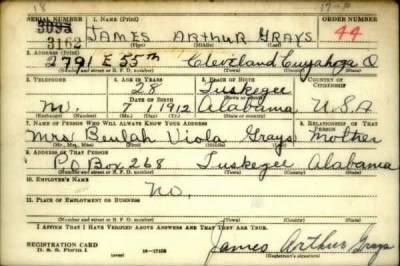 18 17-P
SERIAL NUMBER 1. NAME (Print) ORDER NUMBER
3093
3162 JAMES ARTHUR GRAYS 44
(First) (Middle) (Last)
2. ADDRESS (Print)
2791 E 55th Cleveland Cuyahoga O
(Number and street or R. F. D. number) (Town) (County) (State)
3. TELEPHONE 4. AGE IN YEARS 5. PLACE OF BIRTH 6. COUNTRY OF CITIZENSHIP
28 Tuskegee
DATE OF BIRTH (Town or county)
no. 7 1 1912 Alabama U.S.A
(Exchange) (Number) (Mo.) (Day) (Yr.) (State or country)
7. NAME OF PERSON WHO WILL ALWAYS KNOW YOUR ADDRESS 8. RELATIONSHIP OF THAT PERSON
Mrs. Beulah Viola Grays Mother
(Mr., Mrs., Miss) (First) (Middle) (Last)
9. ADDRESS OF THAT PERSON
PO Box 268 Tuskegee Alabama
(Number and street or R. F. D. number) (Town) (County) (State)
10. EMPLOYER'S NAME
no.
11. PLACE OF EMPLOYMENT OR BUSINESS
(Number and street or R. F. D. number) (Town) (County) (State)
I AFFIRM THAT I HAVE VERIFIED ABOVE ANSWERS AND THAT THEY ARE TRUE.
REGISTRATION CARD
D. S. S. Form 1 16-17105 James Arthur Grays
(Registrant's signature)